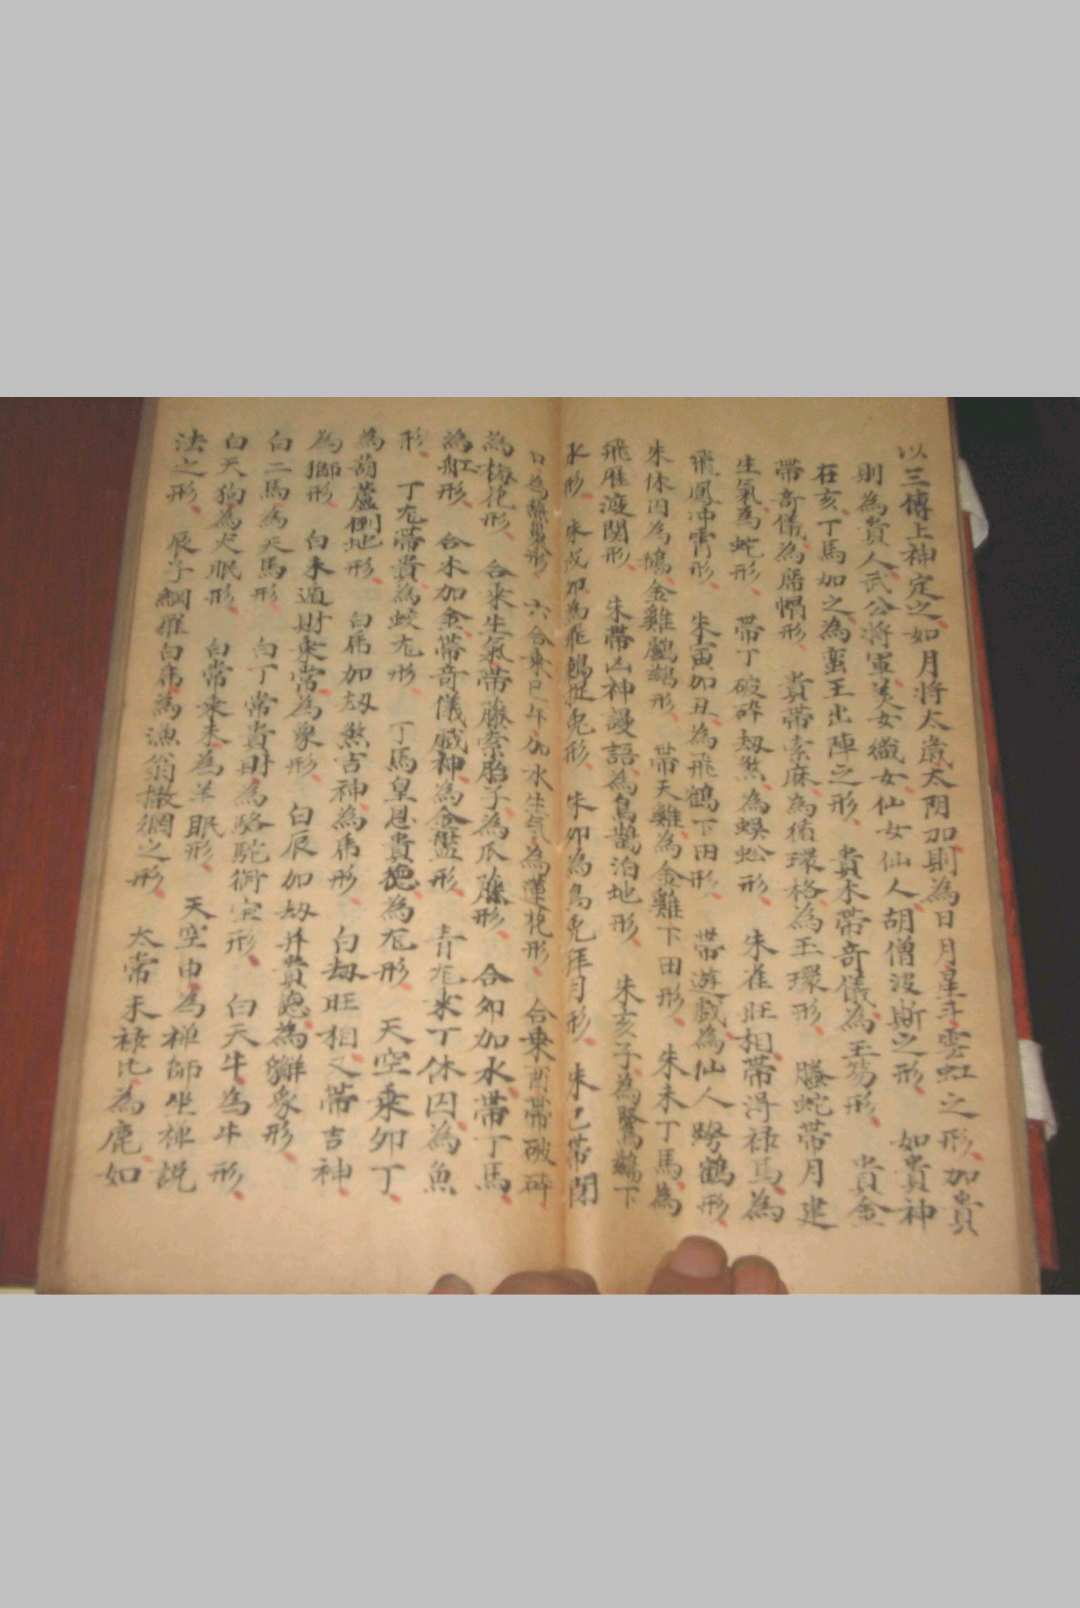 以三傳上神定之如月将太歲太陰加則為日月星斗雲虹之形加貴
則為貴人武公將軍美女織女仙女仙人胡僧波斯之形 如貴神
在亥丁馬加之為蛮王出陣之形 貴木帶奇儀為玉笏形 貴金
帶奇儀為席帽形 貴帶索麻為循環格為玉環形 螣蛇帶月建
生氣為蛇形 帶丁破碎刼煞為蜈蚣形 朱雀旺相帶得祿馬為
飛鳳冲霄形 朱寅加丑為飛鶴下田形 帶遊戲為仙人跨鶴形
朱休囚為鳩金雞鸕鶿形 帶天雞為金雞下田形 朱未丁馬為
飛雁渡関形 朱帶凶神謾語為烏鵲泊地形 朱亥子為鷺鷀下
水形 朱戌卯為飛鵝捉兔形 朱卯為烏兔拜月形 朱巳帶閉
口為形 六合乘巳午加水生气為蓮花形 合乘酉帶破碎
為梅花形 合乘生氣帶籐索胎子為瓜籐形 合卯加水帶丁馬
為舡形 合木加金帶奇儀戲神為金盤形 青龙乘丁休囚為魚
形 丁龙帶貴為蛟龙形 丁馬皇恩貴德為龙形 天空乘卯丁
為葫蘆倒地形 白虎加刼煞吉神為虎形 白刼旺相又帶吉神
為獅形 白未遁財東常為象形 白辰加刼并貴德為獬豸形
白二馬為天馬形 白丁常貴財為駱駝啣宝形 白天牛為牛形
白天狗為犬眠形 白常乘未為羊眠形 天空申為禅師坐禅説
法之形 辰子綱罹白虎為漁翁撒綱之形 太常未祿比為鹿如